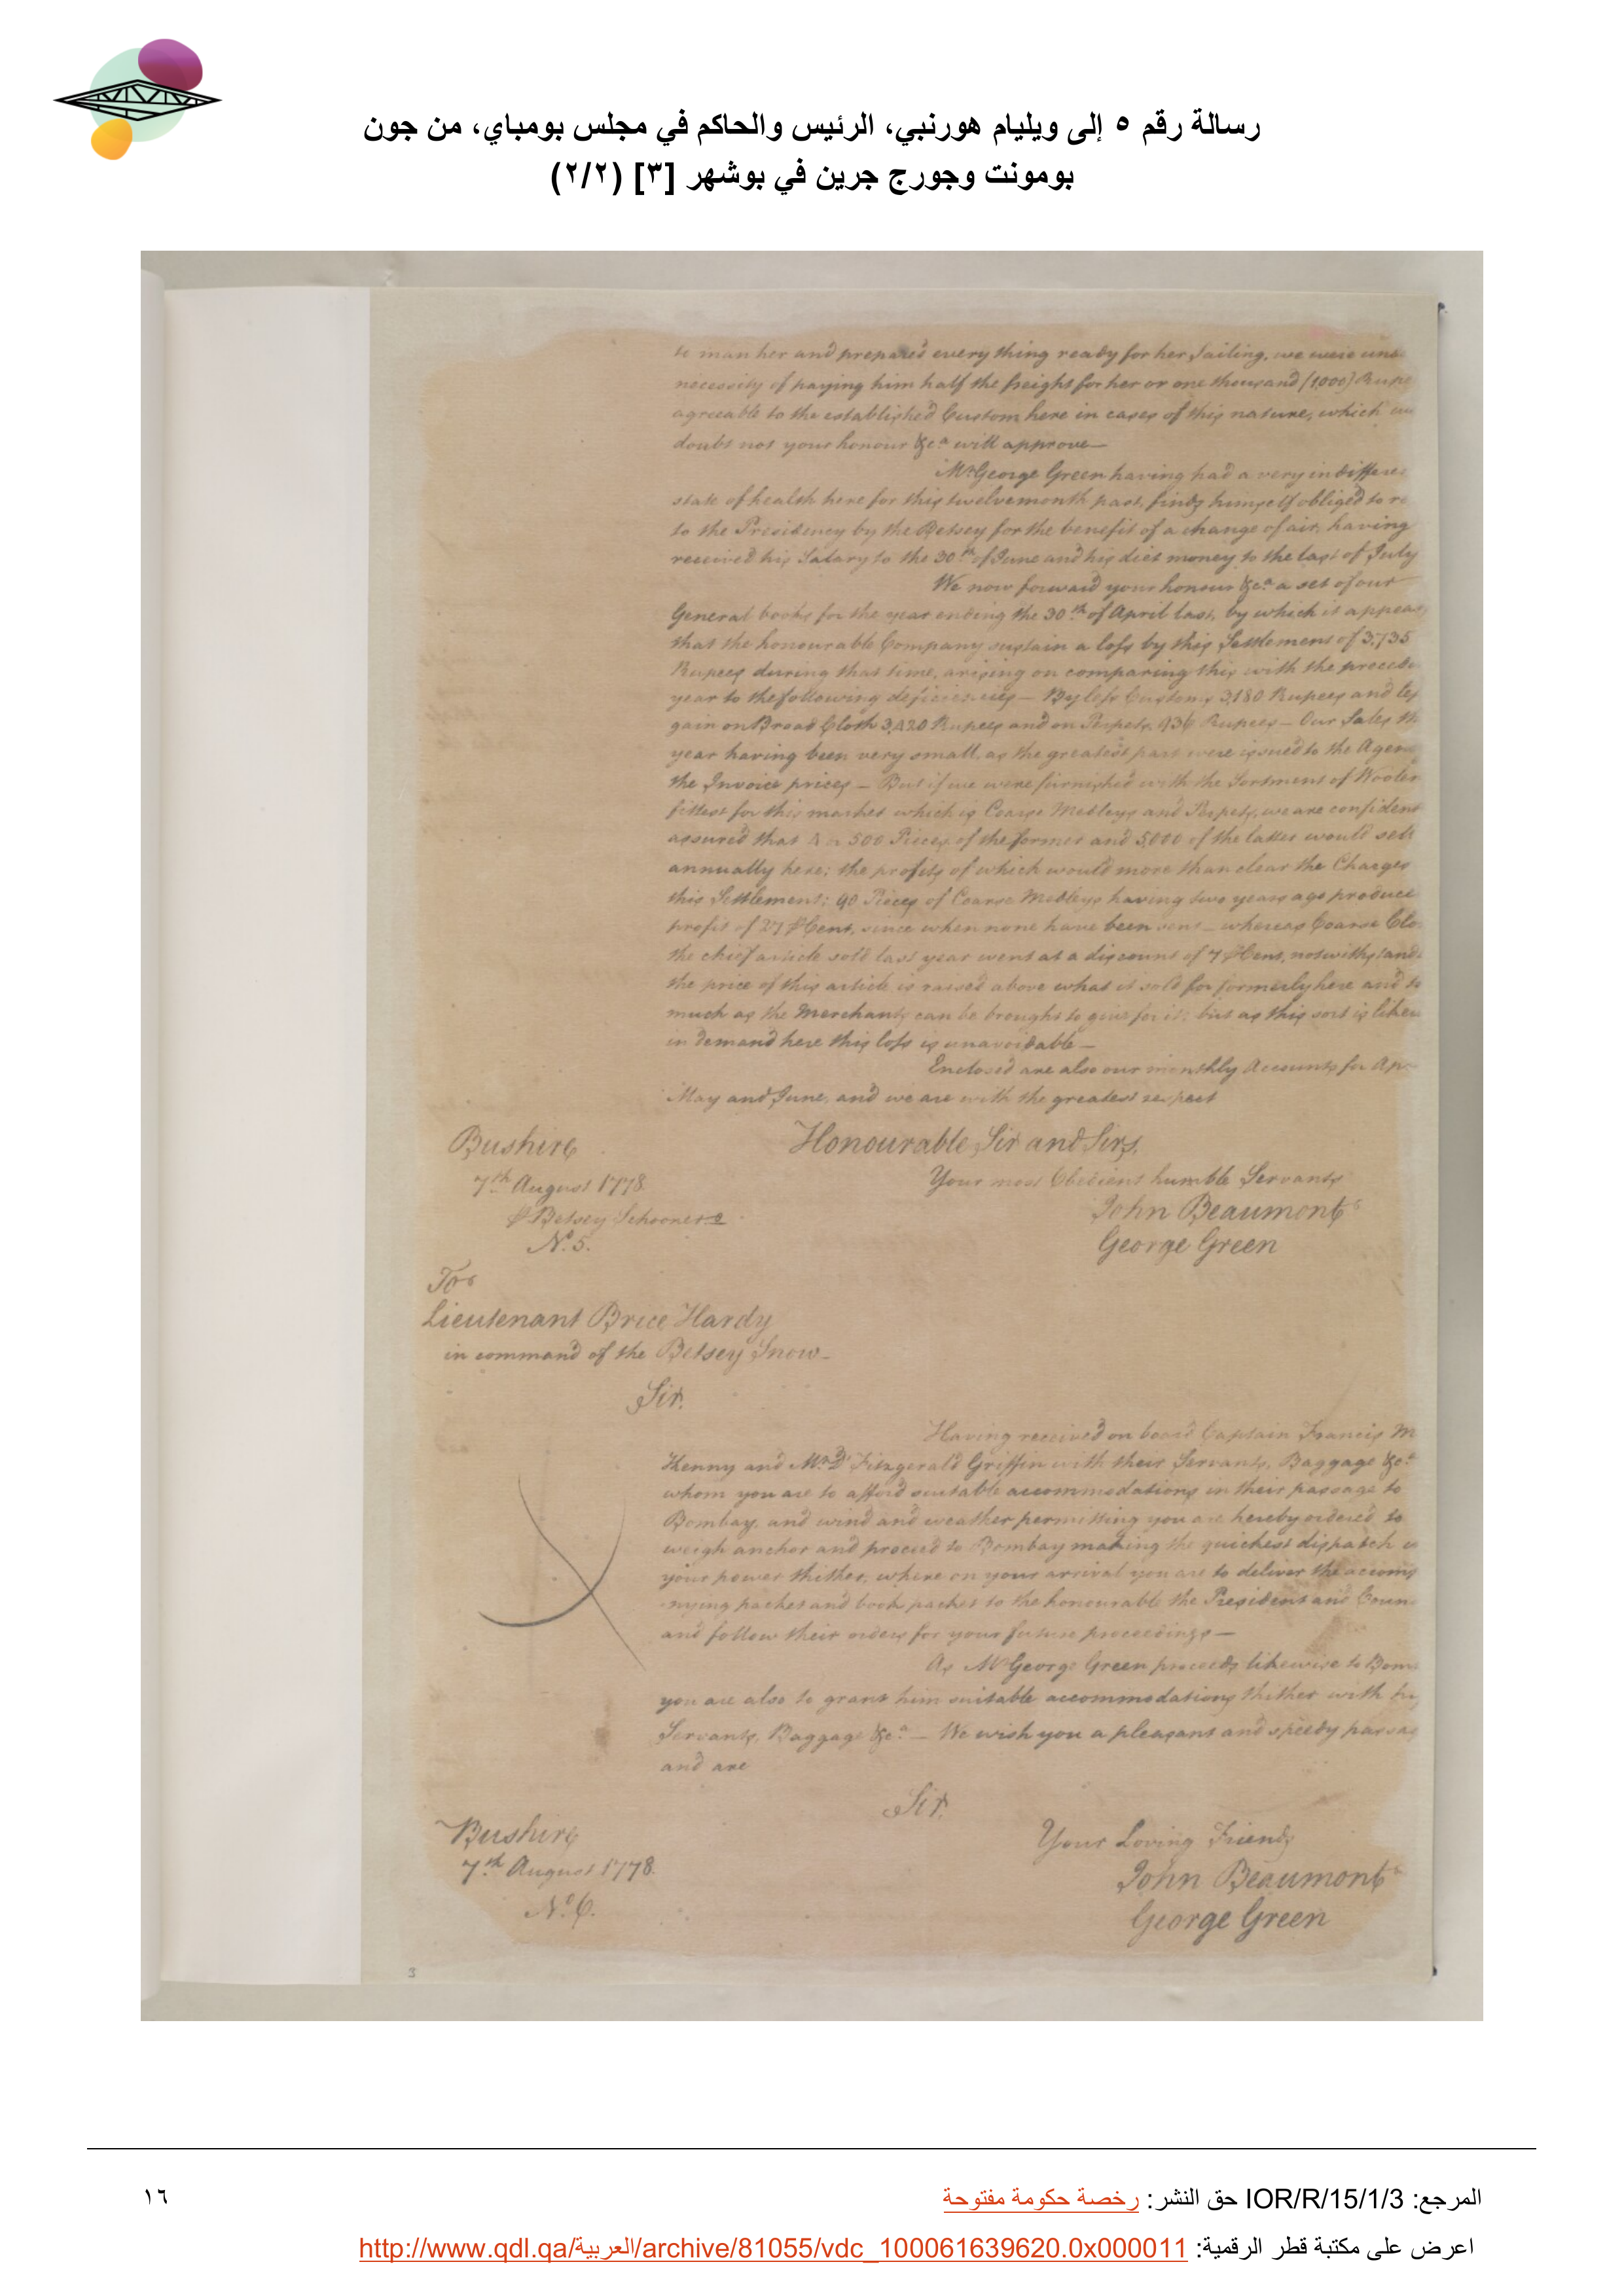 رسالة رقم ٥ إلى ويليام هورنبي، الرئيس والحاكم في مجلس بومباي، من جون
بومونت وجورج جرين في بوشهر [٣] (٢/٢)
to man her and prepared every thing ready for her Sailing, we were und
necessity of paying him half the freight for her or one thousand (1000) Rupe
agreeable to the established Custom here in cases of this nature, which we
doubt not your honour &ca will approve—
Mr George Green having had a very indifferen
state of health here for this twelvemonth past, finds himself obliged to re
to the Presidency by the Betsey for the benefit of a change of air, having
received his Salary to the 30th of June and his diet money to the last of July
We now forward your honour &ca a set of our
General books for the year ending the 30th of April last, by which it appears
that the honourable Company sustain a loss by this Settlement of 3,735
Rupees during that time, arising on comparing this with the precedin
year to the following deficiencies — By less Customs 3,180 Rupees and less
gain on Broad Cloth 3,420 Rupees and on Perpets 936 Rupees — Our Sales th
year having been very small, as the greatest part were issued to the Agen
the Invoice prices — But if we were furnished with the Sortment of Woolen
fittest for this market which is Coarse Medleys and Perpets, we are confident
assured that 500 Pieces of the former and 5,000 of the latter would sell
annually here; the profits of which would more than clear the Charges
this Settlement; 40 Pieces of Coarse Medleys having two years ago produce
profit of 27 ⅌ Cent, since when none have been sent — whereas Coarse Clo
the chief article sold last year went at a discount of 7 ⅌ Cent, notwithstandi
the price of this article is raised above what it sold for formerly here and to
much as the Merchants can be brought to give for it; but as this sort is likew
in demand here this loss is unavoidable —
Enclosed are also our monthly Accounts for Apr
May and June, and we are with the greatest respect
Honourable Sir and Sirs,
Bushire
7th August 1778
⅌ Betsey Schooner
No. 5.
Your most Obedient humble Servants
John Beaumont
George Green
To
Lieutenant Brice Hardy
in command of the Betsey Snow—
Sir,
Having received on board Captain Francis M
Kenny and Mr Fitzgerald Griffin with their Servants, Baggage &ca
whom you are to afford suitable accommodations in their passage to
Bombay, and wind and weather permitting you are hereby ordered to
weigh anchor and proceed to Bombay making the quickest dispatch in
your power thither, where on your arrival you are to deliver the accomp
nying packet and book packet to the honourable the President and Coun
and follow their orders for your future proceedings —
As Mr George Green proceeds likewise to Bom
you are also to grant him suitable accommodations thither with his
Servants, Baggage &ca — We wish you a pleasant and speedy passag
and are
Sir,
Bushire
7th August 1778.
No. 6.
Your Loving Friends
John Beaumont
George Green
3
المرجع: IOR/R/15/1/3 حق النشر: رخصة حكومة مفتوحة
١٦
اعرض على مكتبة قطر الرقمية: http://www.qdl.qa/العربية/archive/81055/vdc_100061639620.0x000011